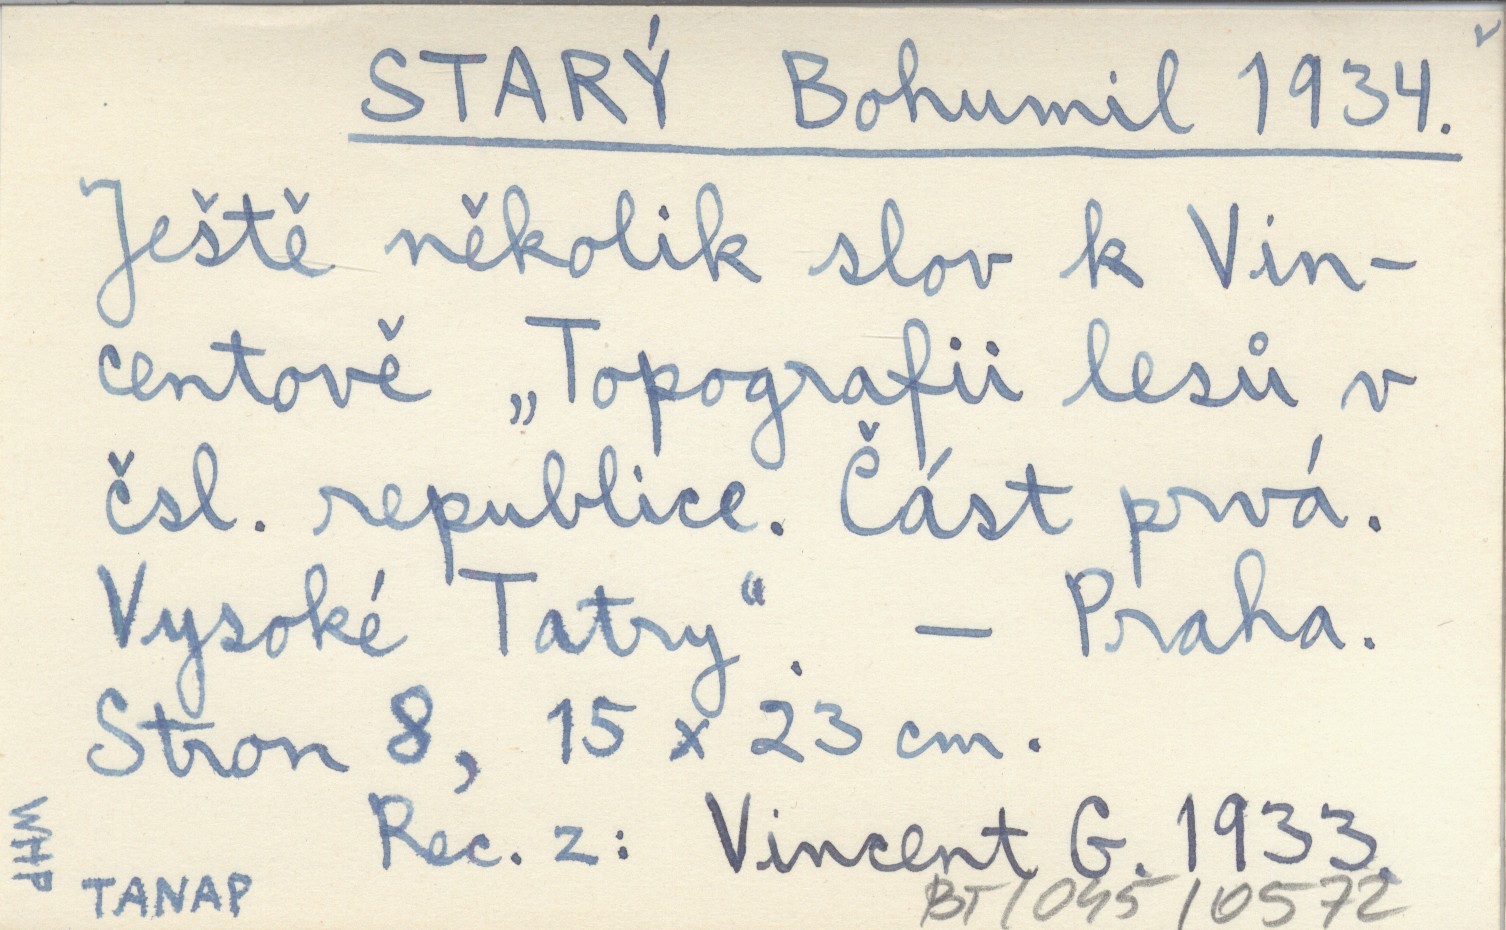 STARÝ Bohumil 1934.
Ještě několik slov k Vin-
centově „Topografii lesů v
čsl. republice. Část prvá.
Vysoké Tatry“. — Praha.
Stron 8, 15 x 23 cm.
Rec. z: Vincent G. 1933.
WHP
TANAP
BT/045/0572